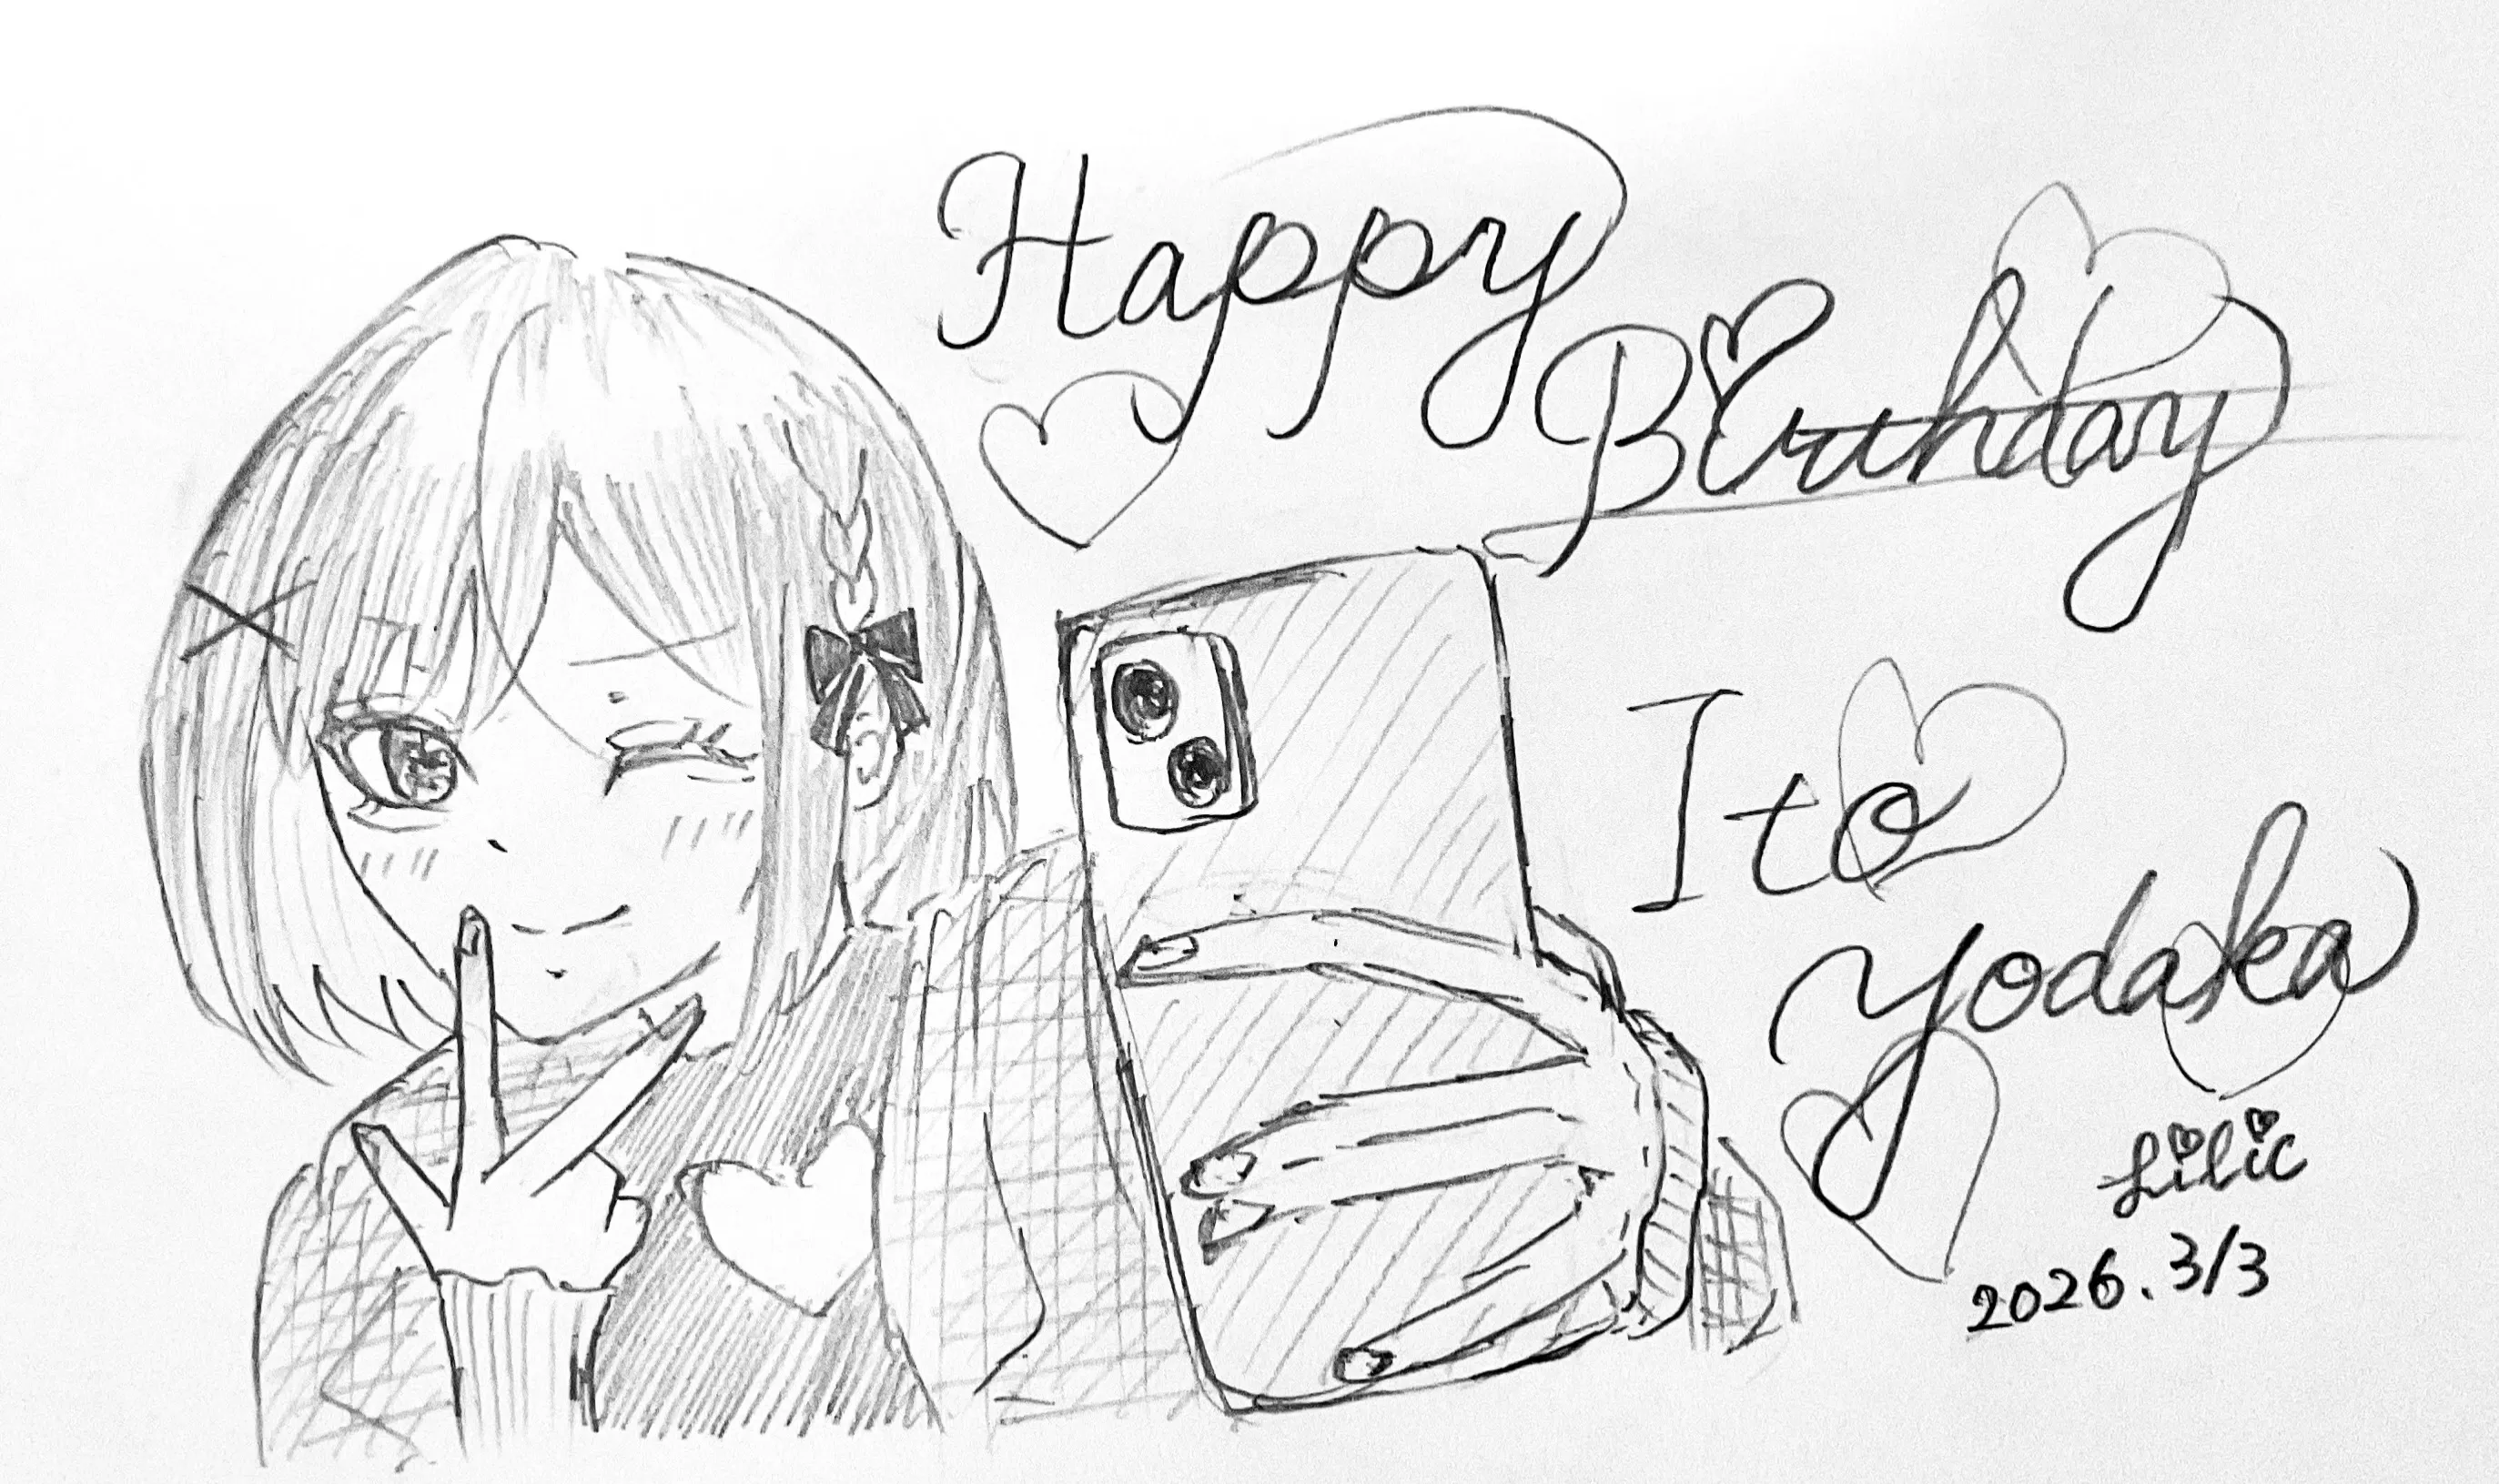 Happy
Birthday
Ito
Yodaka
Lilic
2026.3/3